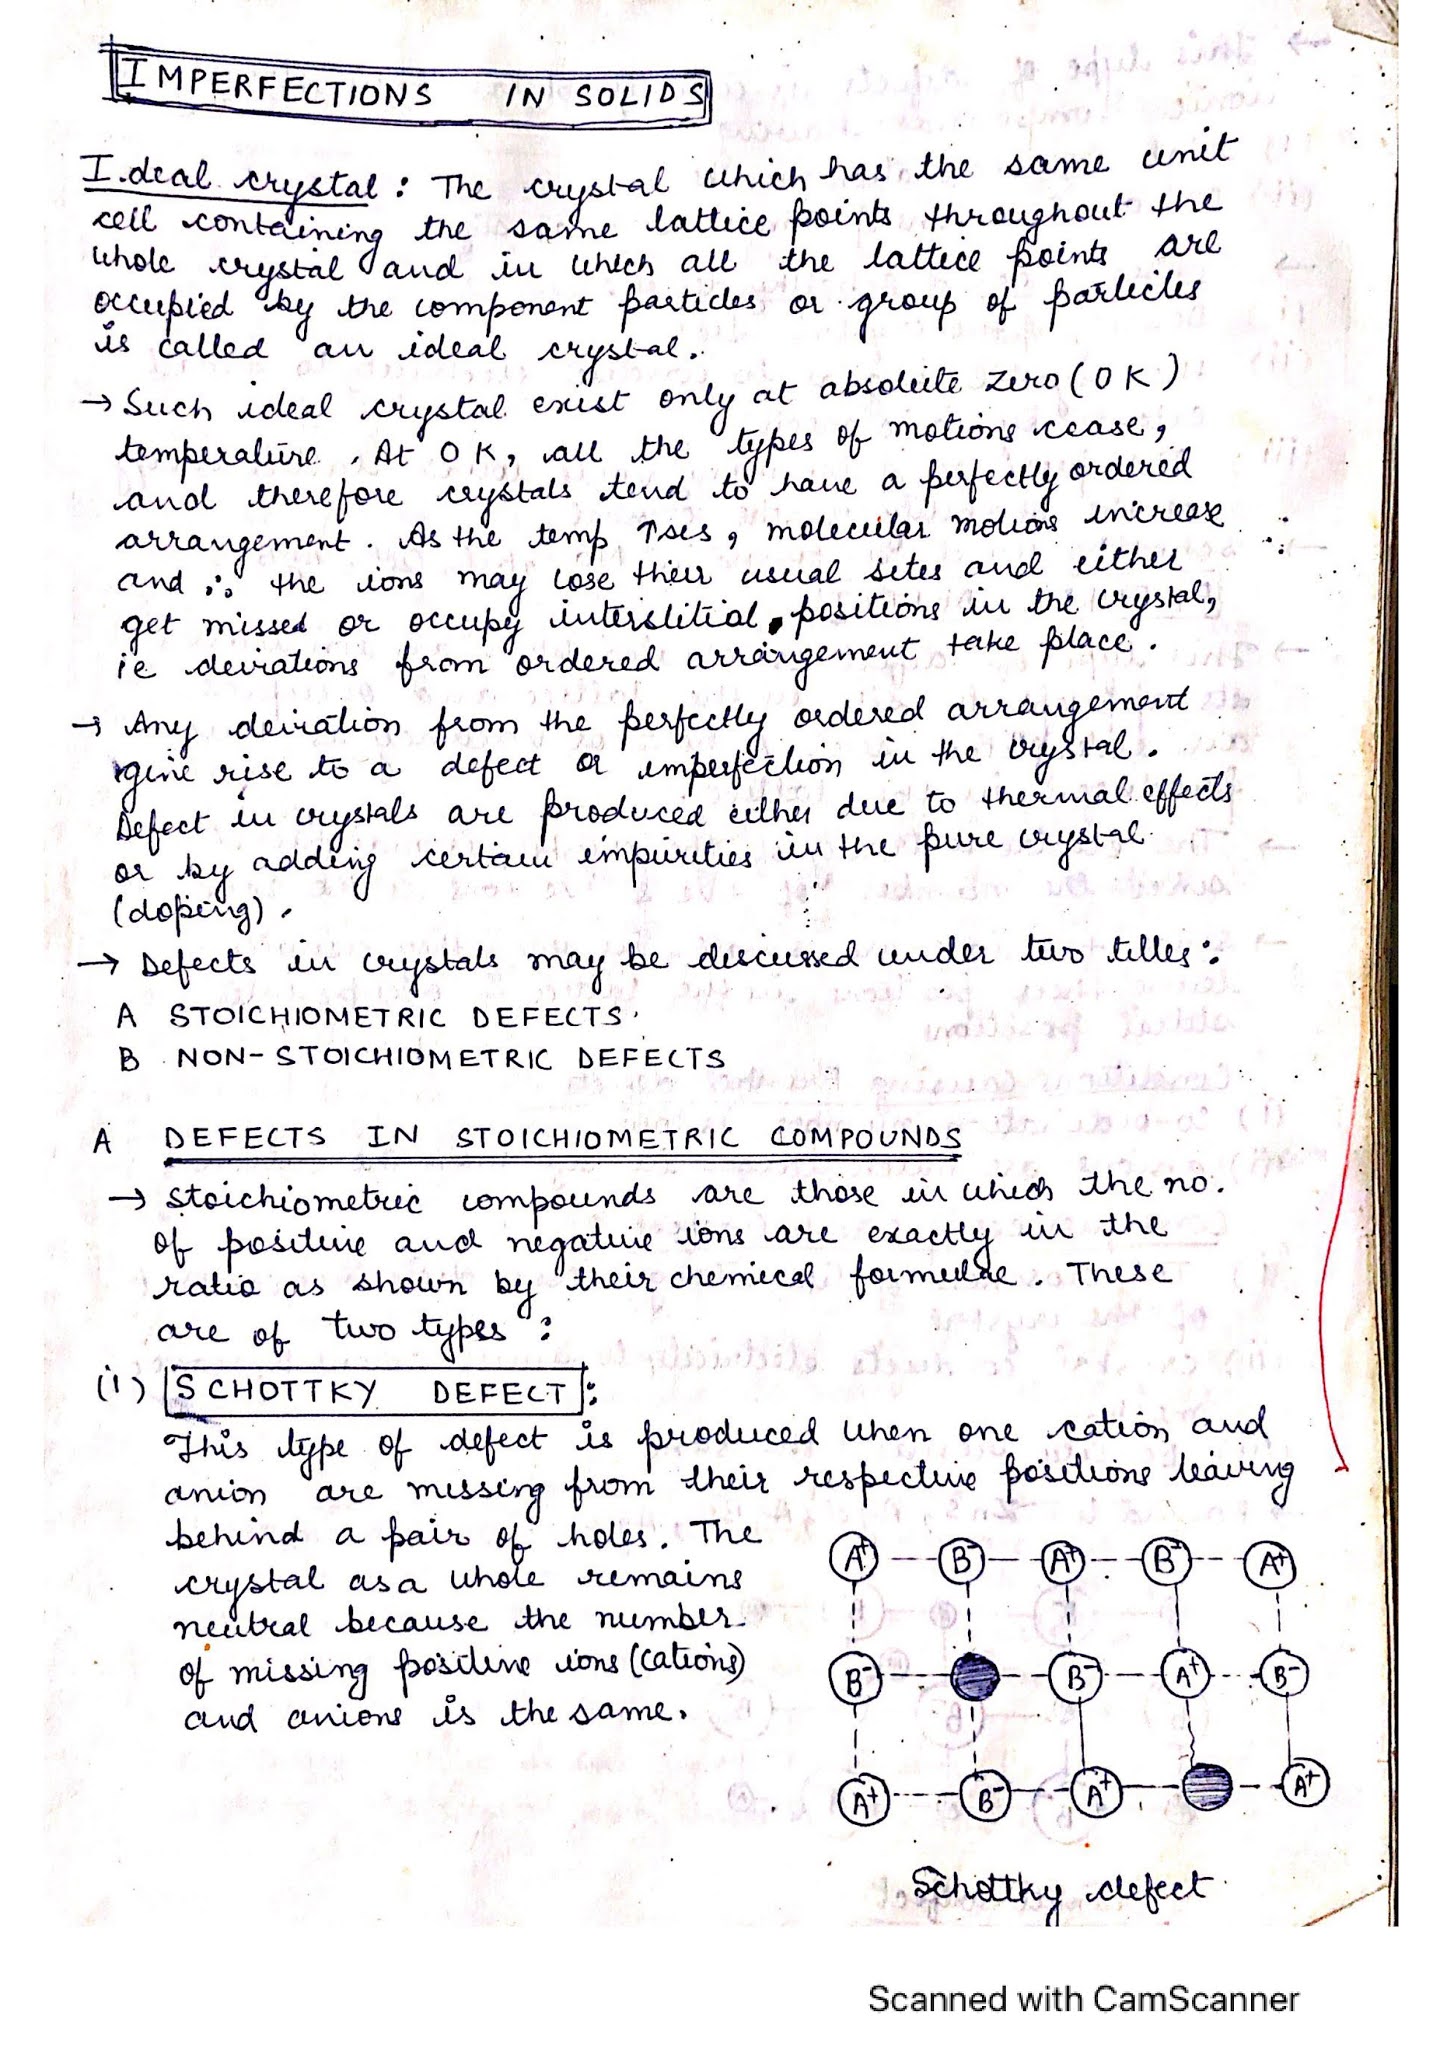 IMPERFECTIONS IN SOLIDS
Ideal crystal : The crystal which has the same unit
cell containing the same lattice points throughout the
whole crystal and in which all the lattice points are
occupied by the component particles or group of particles
is called an ideal crystal.
→ Such ideal crystal exist only at absolute zero (0 K)
temperature. At 0 K, all the types of motions cease,
and therefore crystals tend to have a perfectly ordered
arrangement. As the temp ↑ses, molecular motions increase
and ∴ the ions may lose their usual sites and either
get missed or occupy interstitial positions in the crystal,
ie deviations from ordered arrangement take place.
→ Any deviation from the perfectly ordered arrangement
give rise to a defect or imperfection in the crystal.
Defect in crystals are produced either due to thermal effects
or by adding certain impurities in the pure crystal
(doping).
→ Defects in crystals may be discussed under two titles :
A STOICHIOMETRIC DEFECTS.
B NON-STOICHIOMETRIC DEFECTS
A DEFECTS IN STOICHIOMETRIC COMPOUNDS
→ Stoichiometric compounds are those in which the no.
of positive and negative ions are exactly in the
ratio as shown by their chemical formulae. These
are of two types :
(i) SCHOTTKY DEFECT :
This type of defect is produced when one cation and
anion are missing from their respective positions leaving
behind a pair of holes. The
crystal as a whole remains
neutral because the number
of missing positive ions (cations)
and anions is the same.
A+ B- A+ B- A+
B- B- A+ B-
A+ B- A+ A+
Schottky defect
Scanned with CamScanner